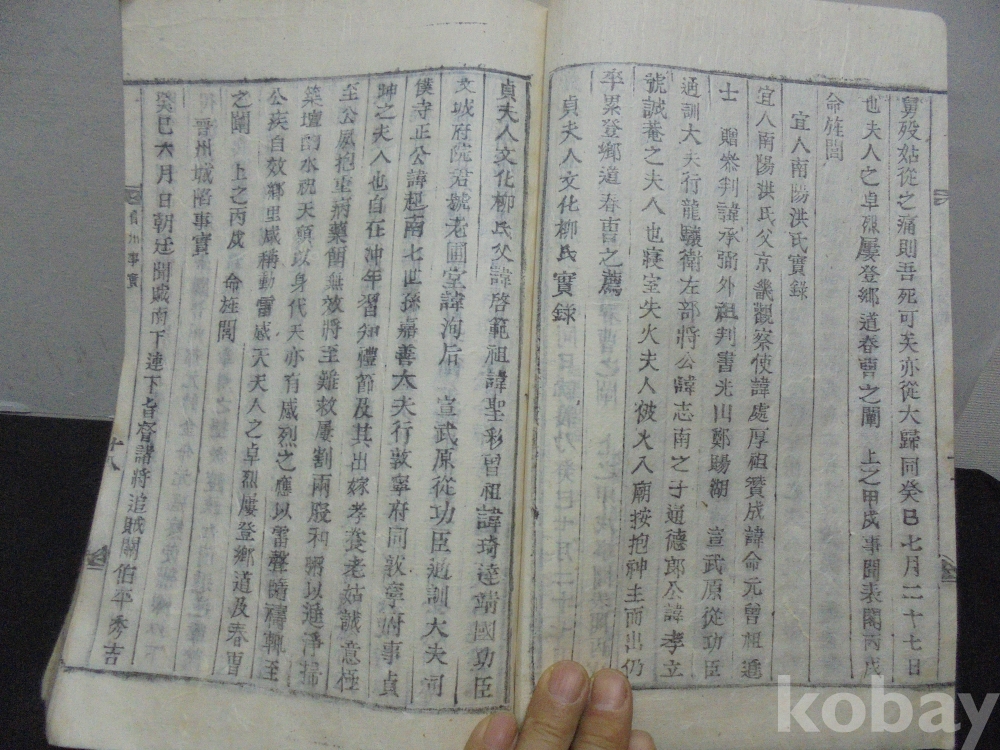 舅歿姑從之痛則吾死可矣亦從大歸同癸巳七月二十七日
也夫人之卓烈屢登鄉道春曹之闡 上之甲戌事聞表閣丙戌
命旌閭
宜人南陽洪氏實錄
宜人南陽洪氏父京畿觀察使諱處厚祖贊成諱命元曾祖進
士 贈參判諱承 外祖判書光山鄭賜湖 宣武原從功臣
通訓大夫行龍驤衛左部將公諱志南之子通德郞公諱孝立
號誠菴之夫人也寢室失火夫人彼火入廟按抱神主而出仍
卒累登鄉道春曹之薦
貞夫人文化柳氏實錄
貞夫人文化柳氏父諱啓範祖諱聖彩曾祖諱琦達靖國功臣
文城府院君號老圃堂諱洵后 宣武原從功臣通訓大夫司
僕寺正公諱起南七世孫嘉善大夫行敦寧府同敦寧府事貞
坤之夫人也自在沖年習知禮節及其出嫁孝養老姑誠意任
至公屬抱重病藥餌無效將至難救屢割兩股和粥以進淨掃
築壇酌水祝天願以身代天亦有感烈之應以雷聲 禱輒至
公疾自效鄉里咸稱動雷感天夫人之卓烈屢登鄉道及春曹
之闡 上之丙戌 命旌閭
晉州城陷事實
癸巳六月日朝廷聞賊南下連下旨督諸將追賊關伯平秀吉
晉州事實
十八
kobay